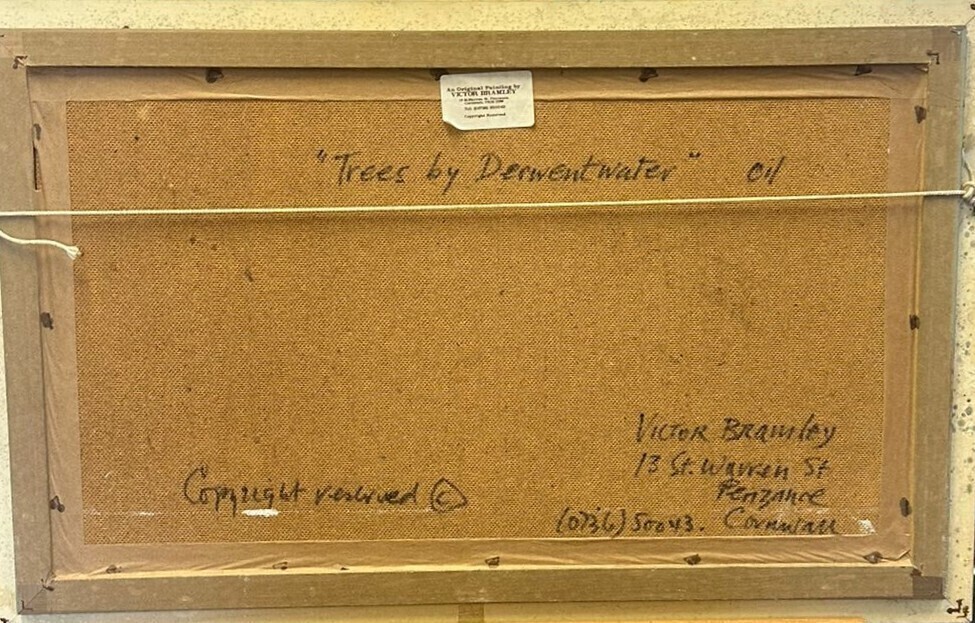 An Original Painting by
VICTOR BRAMLEY
Copyright Reserved
"Trees by Derwentwater" oil
Victor Bramley
13 St. Warren St
Penzance
(0736) 50043. Cornwall
Copyright reserved ©